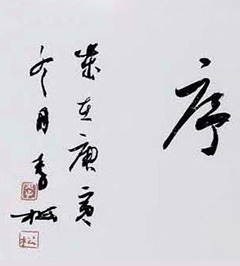 序
岁在庚寅
冬月青松
松